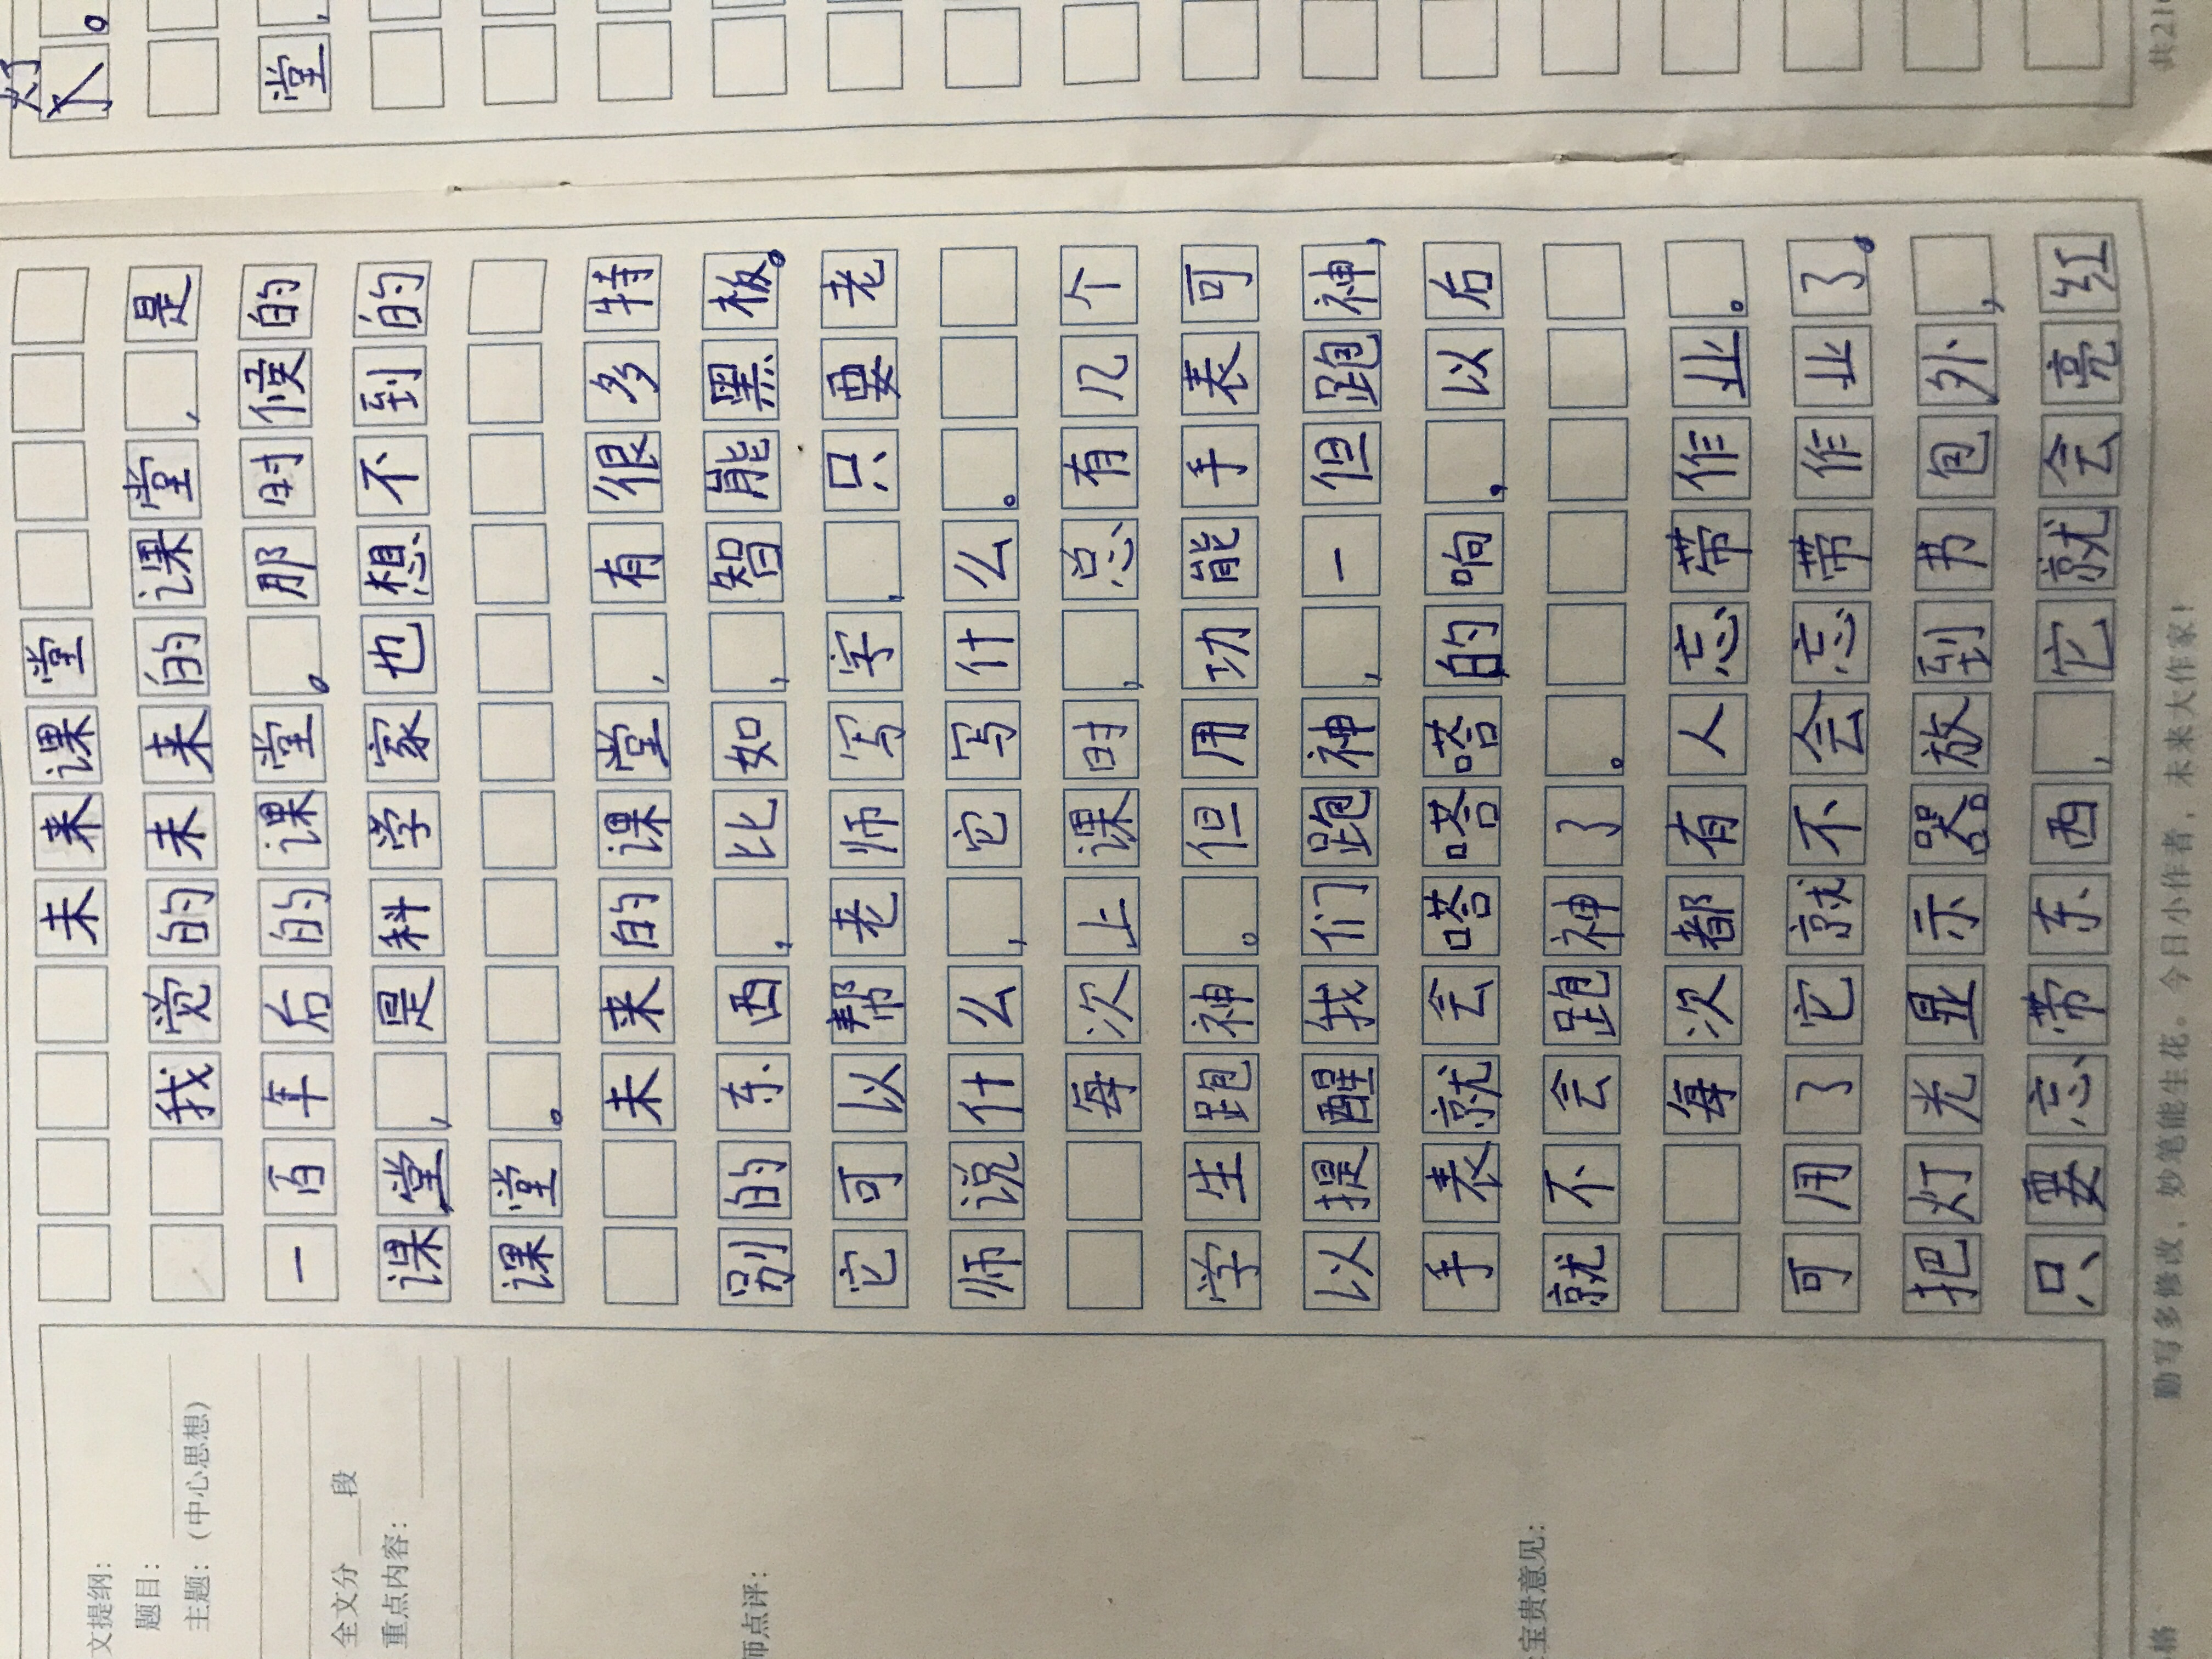 未来课堂
我觉的未来的课堂，是
一百年后的课堂。那时候的
课堂，是科学家也想不到的
课堂。
未来的课堂，有很多特
别的东西，比如，智能黑板。
它可以帮老师写字，只要老
师说什么，它写什么。
每次上课时，总有几个
学生跑神。但用功能手表可
以提醒我们跑神，一但跑神，
手表就会嗒嗒嗒的响，以后
就不会跑神了。
每次都有人忘带作业。
可用了它就不会忘带作业了。
把灯光显示器放到书包外，
只要忘带东西，它就会亮红
灯。
堂，
文提纲：
题目：
主题：(中心思想)
全文分 段
重点内容：
师点评：
宝贵意见：
格
勤写多修改，妙笔能生花。今日小作者，未来大作家！